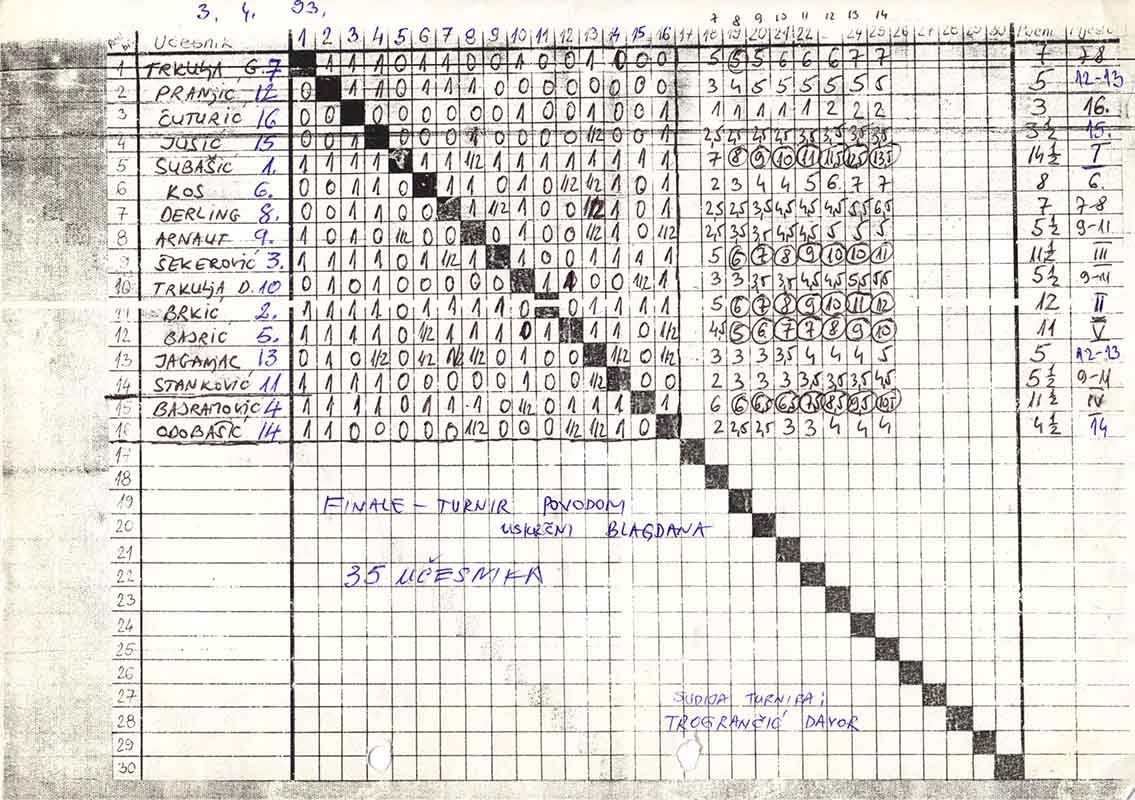 3. 4. 93.
7 8 9 10 11 12 13 14
Učesnik 1 2 3 4 5 6 7 8 9 10 11 12 13 14 15 16 17 18 19 20 21 22 24 25 26 27 28 29 30
1 TRKULJA, G. 7 1 1 1 0 1 1 0 1 0 0 0 1 0 0 0 5 5 5 6 6 6 7 7 7 7-8
2 PRANJIĆ 12 0 1 1 0 1 1 1 0 0 0 0 0 0 0 0 3 4 5 5 5 5 5 5 5 12-13
3 ČUTURIĆ 16 0 0 0 0 0 0 0 0 1 0 0 1 0 0 1 1 1 1 1 1 2 2 2 3 16.
4 JUSIĆ 15 0 0 1 0 0 0 1 0 0 0 0 1/2 0 0 1 2,5 2,5 2,5 2,5 3,5 3,5 3,5 3,5 3 1/2 15.
5 SUBAŠIĆ 1. 1 1 1 1 1 1 1/2 1 1 1 1 1 1 1 1 7 8 9 10 11 11,5 12,5 13,5 14 1/2 I
6 KOS 6. 0 0 1 1 0 1 1 0 1 0 1/2 1/2 1 0 1 2 3 4 4 5 6. 7 7 8 6.
7 DERLING 8. 0 0 1 1 0 0 1 1/2 1 0 0 1/2 1 0 1 2,5 2,5 3,5 4,5 4,5 4,5 5,5 6,5 7 7-8
8 ARNAUT 9. 1 0 1 0 1/2 0 0 0 1 0 0 1/2 1 0 1/2 2,5 3,5 3,5 4,5 4,5 5 5 5 5 1/2 9-11
9 ŠEKEROVIĆ 3. 1 1 1 1 0 1 1/2 1 1 0 0 1 1 1 1 5 6 7 8 9 10 10 11 11 1/2 III
10 TRKULJA D. 10 1 1 0 1 0 0 0 0 0 1 0 0 1/2 1 3 3 3,5 3,5 4,5 4,5 5,5 5,5 5 1/2 9-11
11 BRKIĆ 2. 1 1 1 1 0 1 1 1 1 0 0 1 1 1 1 5 6 7 8 9 10 11 12 12 II
12 BAJRIĆ 5. 1 1 1 1 0 1/2 1 1 1 0 1 1 1 0 1/2 4,5 5 6 7 7 8 9 10 11 V
13 JAGANJAC 13 0 1 0 1/2 0 1/2 1/2 1/2 0 1 0 0 1/2 0 1/2 3 3 3 3,5 4 4 4 5 5 12-13
14 STANKOVIĆ 11 1 1 1 1 0 0 0 0 0 1 0 0 1/2 0 0 2 3 3 3 3,5 3,5 3,5 4,5 5 1/2 9-11
15 BAJRAMOVIĆ 4 1 1 1 1 0 1 1 1 0 1/2 0 1 1 1 1 6 6 6,5 6,5 7,5 8,5 9,5 10,5 11 1/2 IV
16 ODOBAŠIĆ 14 1 1 0 0 0 0 0 1/2 0 0 0 1/2 1/2 1 0 2 2,5 2,5 3 3 4 4 4 4 1/2 14
17
18
19
FINALE – TURNIR POVODOM
20
USKRŠNI BLAGDANA
21
22
35 UČESNIKA
23
24
25
26
27
SUDIJA TURNIRA:
28
TROGRANČIĆ DAVOR
29
30